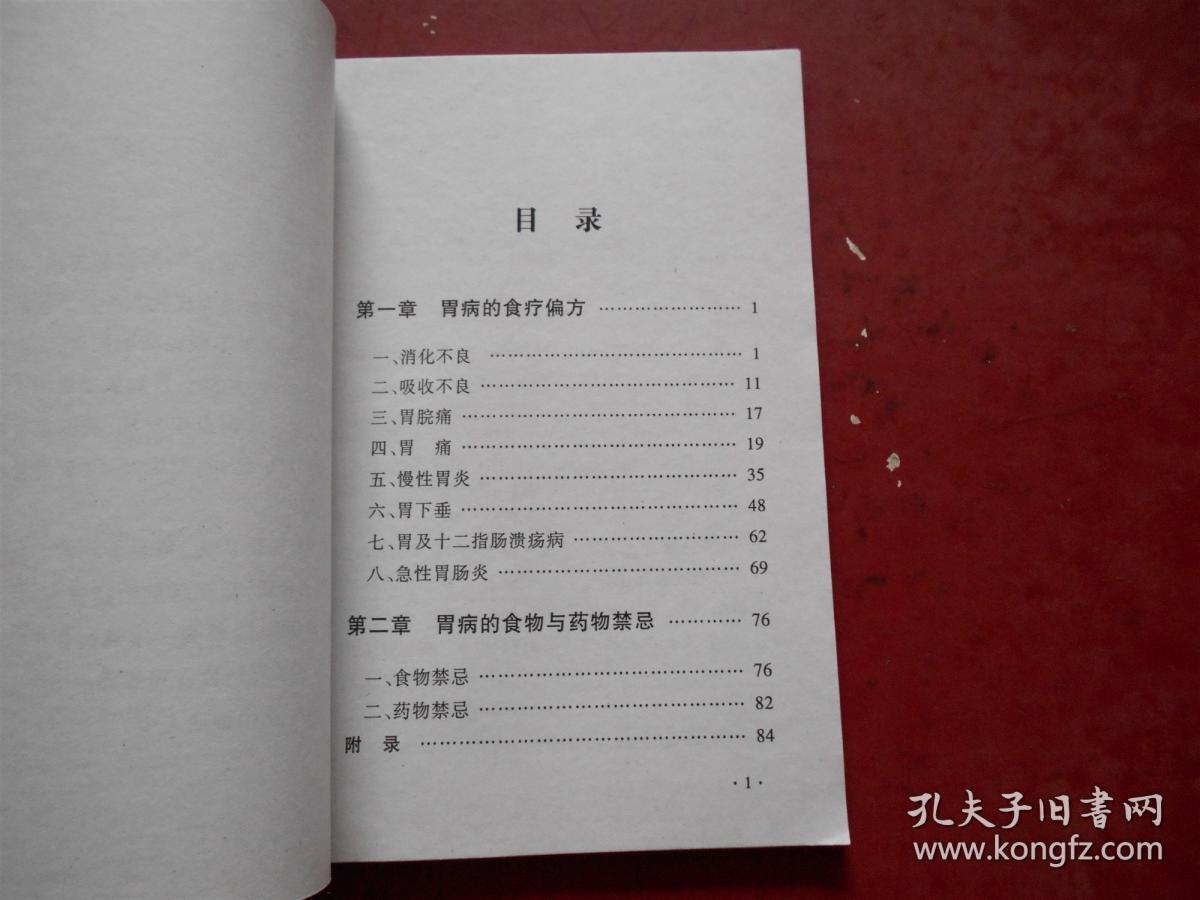 目 录
第一章 胃病的食疗偏方 …………………… 1
一、消化不良 …………………………………… 1
二、吸收不良 …………………………………… 11
三、胃脘痛 ……………………………………… 17
四、胃 痛 ……………………………………… 19
五、慢性胃炎 …………………………………… 35
六、胃下垂 ……………………………………… 48
七、胃及十二指肠溃疡病 ……………………… 62
八、急性胃肠炎 ………………………………… 69
第二章 胃病的食物与药物禁忌 ………… 76
一、食物禁忌 …………………………………… 76
二、药物禁忌 …………………………………… 82
附 录 …………………………………………… 84
·1·
孔夫子旧书网
www.kongfz.com